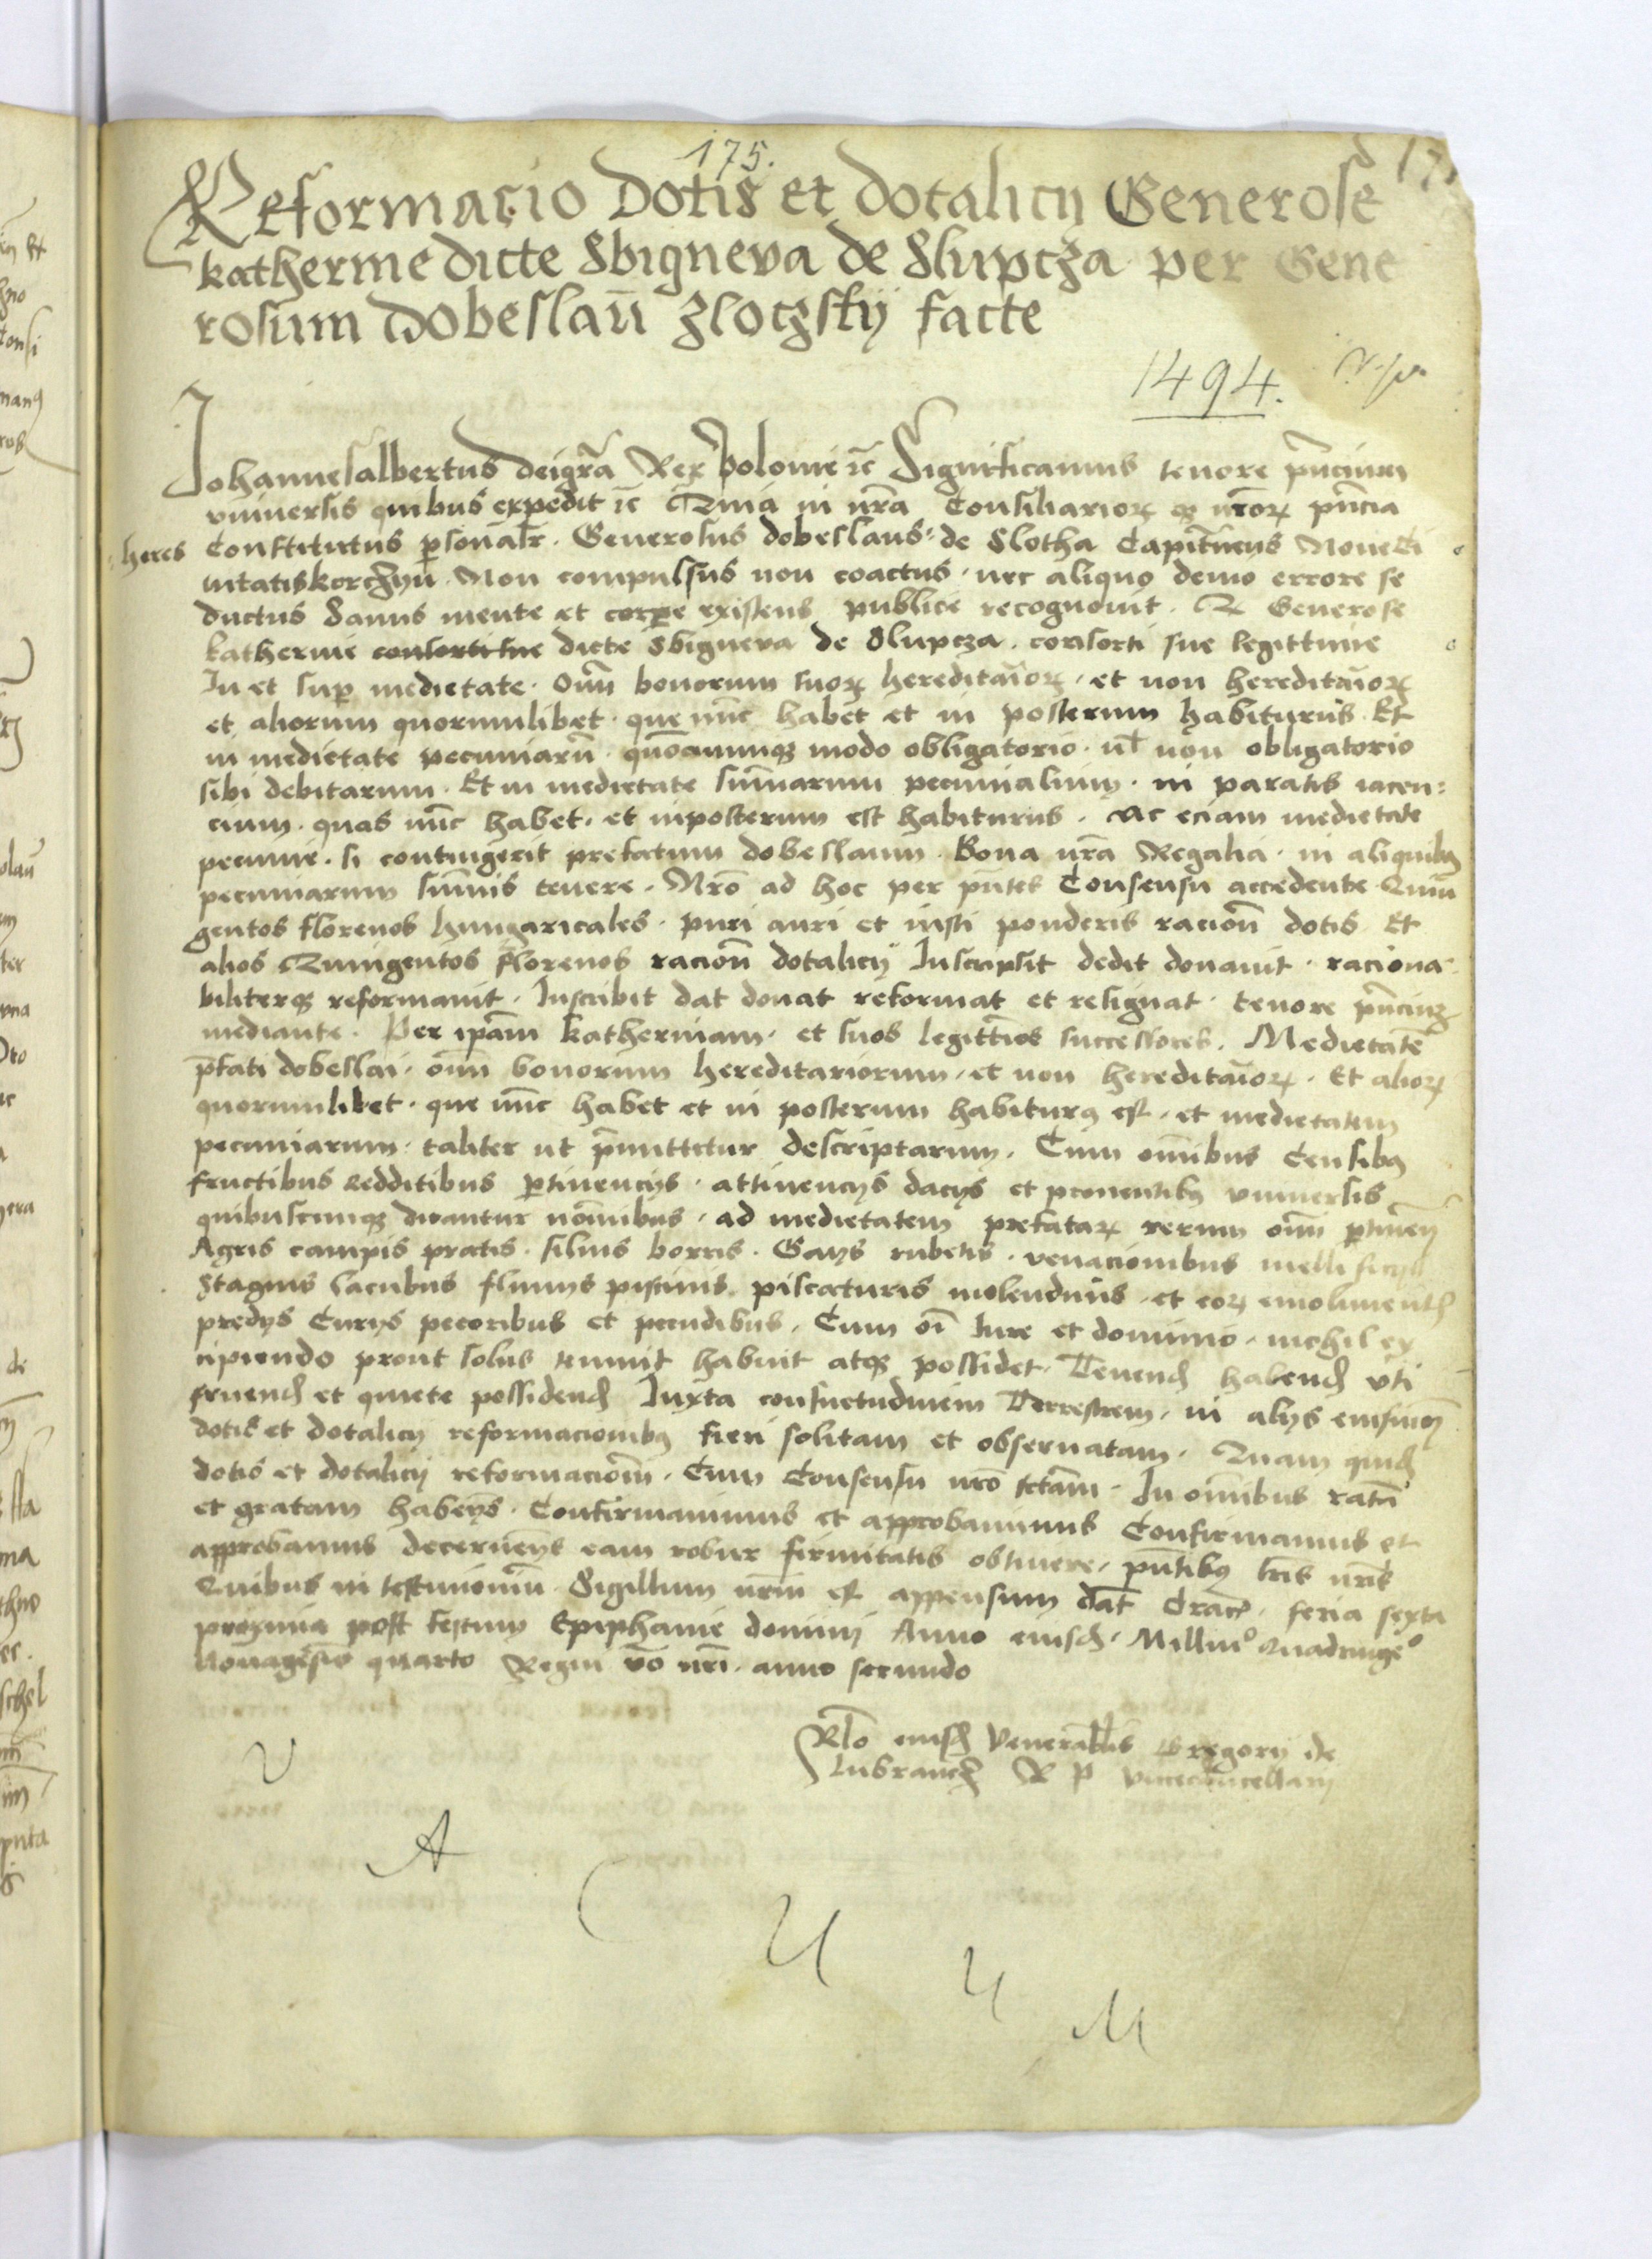 175.
Reformacio dotis et dotalicij Generose
katherine dicte Sbigneva de Slupcza per Gene
rosum Dobeslaū Zloczskij facte
1494.
Johannesalbertus deigrā Rex polonie ꝛc̄ Significamus tenore pn̄cium
vniuersis quibus expedit ꝛc̄ Quia in nr̄a Consiliarioꝝ qꝫ nr̄oꝝ pn̄cia
heres Constitutus ꝑsonalr̄ Generosus dobeslaus de Slotha Capitaneus Noueci
uitatiskorczyn̄ Non compulsus non coactus nec aliquo demo errore se
ductus Sanus mente et corꝑe existens publice recognouit Q Generose
katherine consorti sue dicte Sbigneva de Slupcza consorti sue legittime
In et suꝑ medietate Om̄ bonorum suoꝝ hereditarioꝝ et non hereditarioꝝ
et aliorum quorumlibet que nūc habet et in posterum habiturus Et
in medietate pecuniarū quōcumqꝫ modo obligatorio ul̄ non obligatorio
sibi debitarum Et in medietate sūmarum pecunialium in paratis iacen=
cium quas nūc habet et inposterum est habiturus Ac eciam medietate
pecunie si contingerit prefatum dobeslaum Bona nr̄a Regalia in aliquibꝰ
pecuniarum sūmis tenere Nr̄o ad hoc per pn̄tes Consensu accedente Quin
gentos florenos hungaricales puri auri et iusti ponderis racion̄ dotis Et
alios Quingentos florenos racion̄ dotalicij Inscripsit dedit donauit raciona
biliterqꝫ reformauit Inscribit dat donat reformat et resignat tenore pn̄cium
mediante Per ip̄am katherinam et suos legittīos successores Medietatē
p̄fati dobeslai om̄ bonorum hereditariorum et non hereditarioꝝ Et alioꝝ
quorumlibet que nūc habet et in posterum habiturꝰ est et medietatem
pecuniarum taliter ut p̄mittitur descriptarum Cum om̄ibus Censibꝰ
fructibus redditibus ꝑtinencijs attinencijs dacijs et prouentibꝰ vniuersis
quibuscumqꝫ dicantur nōinibus ad medietatem prefataꝝ rerum om̄ ꝑtinen̄
Agris campis pratis siluis borris Gaijs rubetis venacionibus mellificijs
Stagnis lacubus fluuijs piscinis piscaturis molendinis et eoꝝ emolimentis
predijs Curijs pecoribus et pecudibus Cum oī Iure et dominio nichil ex
cipiendo prout solus tenuit habuit atqꝫ possidet Tenend habend vti
fruend et quiete possidend Iuxta consuetudinem Terrestrem in alijs eiusmodi
dotis et dotalicij reformacionibꝰ fieri solitam et obseruatam Quam quid
dotis et dotalicij reformacioēm Cum Consensu nr̄o fctam In om̄ibus ratā
et gratam haben̄s Confirmauimus et approbauimus Confirmamus et
approbamus decernen̄s eam robur firmitatis obtinere pn̄tibꝰ lr̄is nr̄is
Quibus in testimoniū Sigillum nr̄m est appensum Dat̄ Crac̄ feria sexta
proxima post festum Epiphanie domini Anno eiusd Millīo Quadringē
Nonagesīo quarto Regni vō nr̄i anno secundo
Rl̄o eiusd Venerabilis Gregorij de
lubrancz R P vicecancellarij
V
A
C
U
U
M